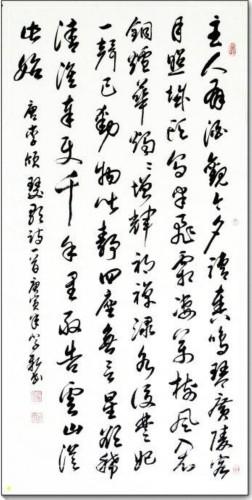 主人有酒歡今夕請奏鳴琴廣陵客
月照城頭烏半飛霜淒萬樹風入衣
銅爐華燭燭增輝初彈淥水後楚妃
一聲已動物皆靜四座無言星欲稀
清淮奉使千餘里敢告雲山從
此始 唐李頎琴歌詩一首庚寅年書